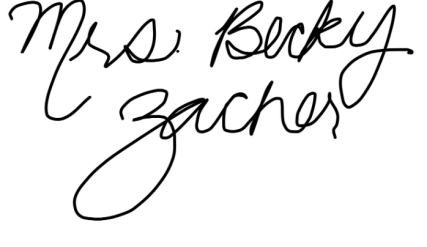 Mrs. Becky
Zacher